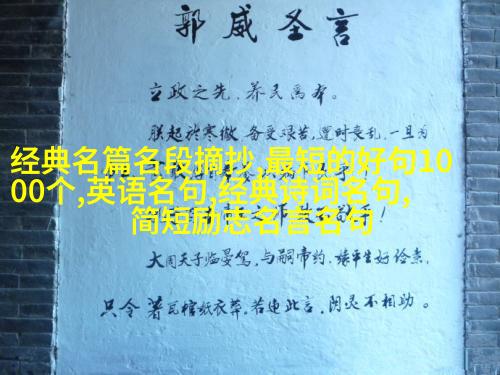 郭威圣言
立政之先,养民为本。
朕起於寒微,备受艰苦,遭时丧乱,一旦为
经典名篇名段摘抄,最短的好句10
00个,英语名句,经典诗词名句,
简短励志名言名句
大周天子临晏驾,与嗣帝约,缘平生好俭素,
只令著瓦棺纸衣葬。若违此言,阴灵不相助。